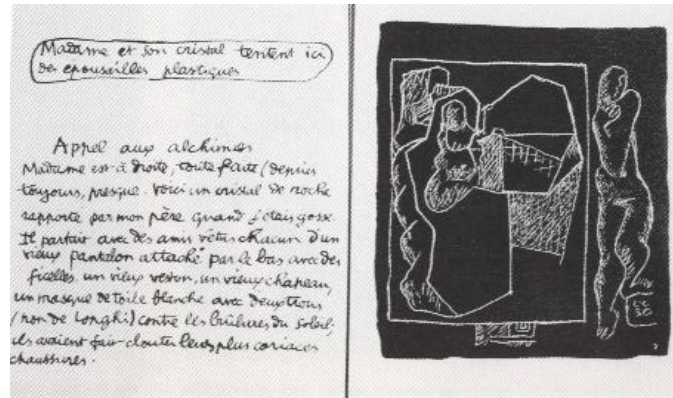 Madame et son cristal tentent ici
des epousailles plastiques
Appel aux alchimes
Madame est à droite, toute faite (depuis
toujours, presque. Voici un cristal de roche
rapporté par mon père quand j'étais gosse.
Il partait avec des amis vêtus chacun d'un
vieux pantalon attaché par le bas avec des
ficelles, un vieux veston, un vieux chapeau,
un masque de toile blanche avec deux trous
(non de Longhi) contre les brûlures du soleil;
ils avaient fait clouter leurs plus coriaces
chaussures.